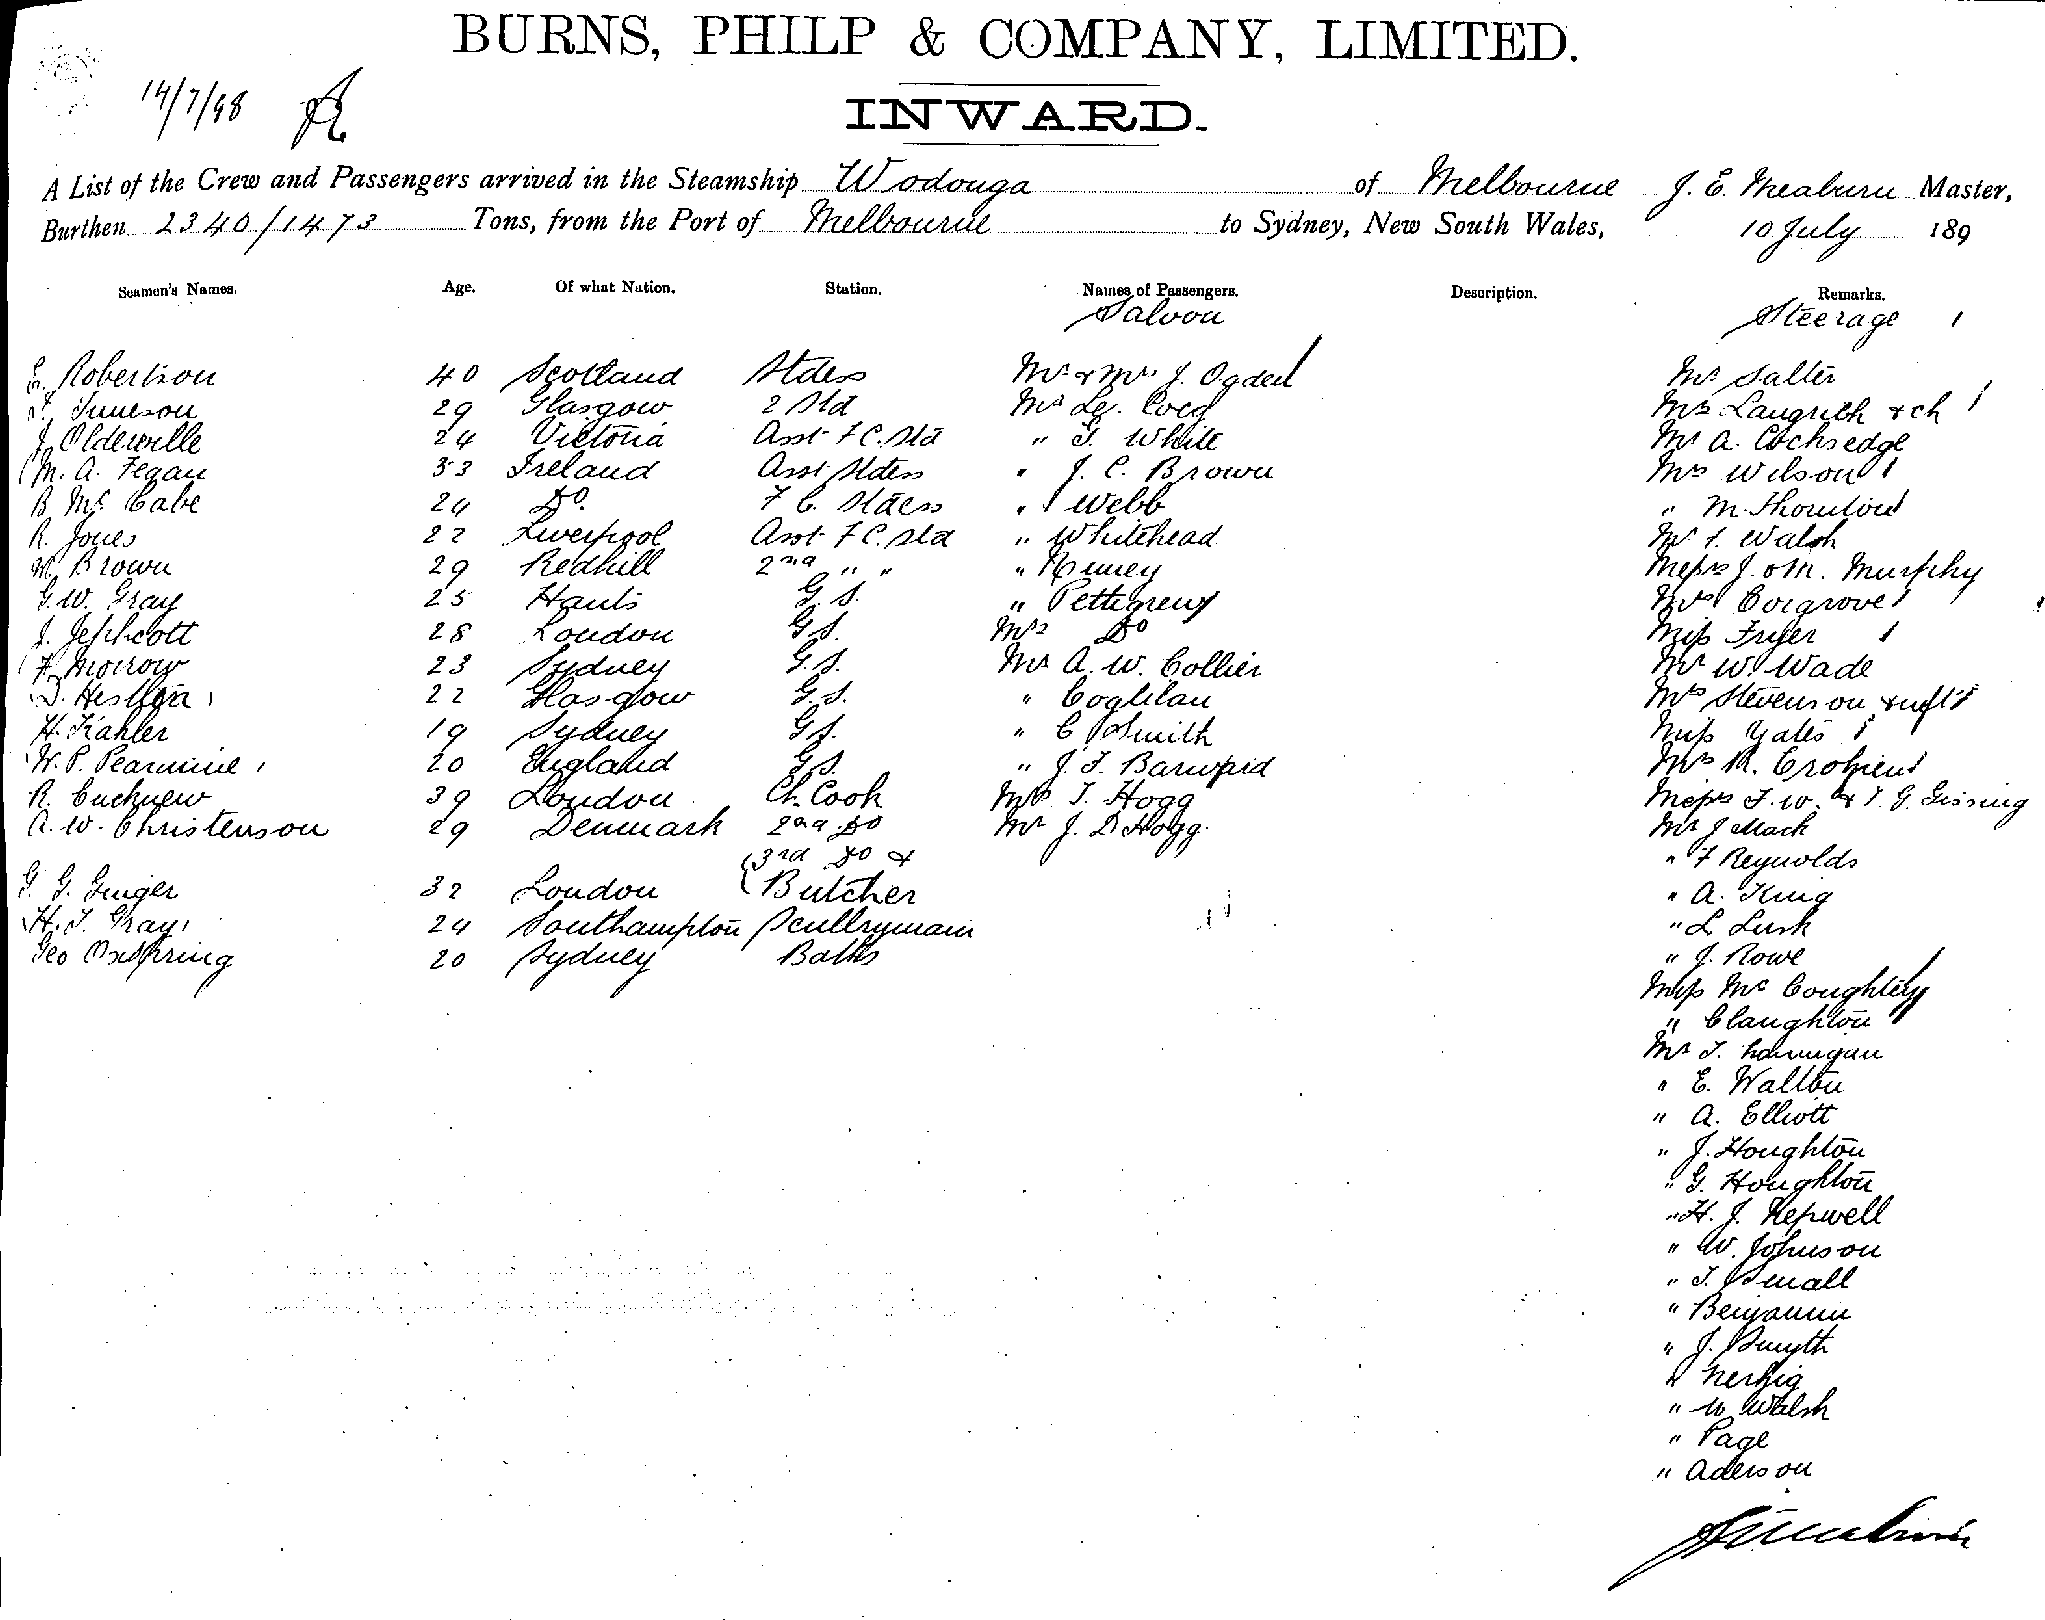 BURNS, PHILP & COMPANY, LIMITED.
14/7/98
INWARD.
A List of the Crew and Passengers arrived in the Steamship Wodonga of Melbourne J. E. Meaburn Master,
Burthen 2340/1473 Tons, from the Port of Melbourne to Sydney, New South Wales, 10 July 189
Seamen's Names. Age. Of what Nation. Station. Names of Passengers. Description. Remarks.
Saloon Steerage
E. Robertson 40 Scotland Stdess Mr & Mrs J. Ogden Mr Salter
Jameson 29 Glasgow 2 Std Mr Le. Cocq Mrs Langrith & ch
J. Olderville 24 Victoria Asst F C. Std " G. White Mr A. Cocksedge
M. A. Fegan 33 Ireland Asst Stdess " J. C. Brown Mrs Wilson
B McCabe 24 Do. F C. Stdess " Webb " M. Thornton
R. Jones 22 Liverpool Asst F C. Std " Whitehead Mr T. Walsh
W. Brown 29 Redhill 2nd " " " Kenney Messrs J. & M. Murphy
G. W. Gray 25 Hants G. S. " Pettigrew Mrs Cosgrove
J. Jephcott 28 London G. S. Mrs Do Miss Fryer
F. Morrow 23 Sydney G. S. Mr A. W. Collier Mr W. Wade
D. Heslten 22 Glasgow G. S. " Coghlan Mrs Stevenson & inft
H. Kahler 19 Sydney G S. " C Smith Miss Yates
W. P. Pearmine 20 England G. S. " J. T. Barwpid Mrs R. Crozier
R. Cucknew 39 London Ch. Cook Mrs T. Hogg Messrs F. W. & T. G. Gissing
A. W. Christenson 29 Denmark 2nd Do Mr J. D Hogg. Mr J Mack
3rd Do & " F Reynolds
G. G. Ginger 32 London Butcher " A. King
H. J. Gray 24 Southampton Scullryman " L Lusk
Geo Oxspring 20 Sydney Baths " J. Rowe
Miss McCoughtery
" Claughton
Mr T. Lannigan
" E. Walton
" A. Elliott
" J. Houghton
" G. Houghton
" H. J. Hepwell
" W. Johnson
" T. Small
" Benjamin
" J. Smyth
" Nerhig
" W Walsh
" Page
" Aderson